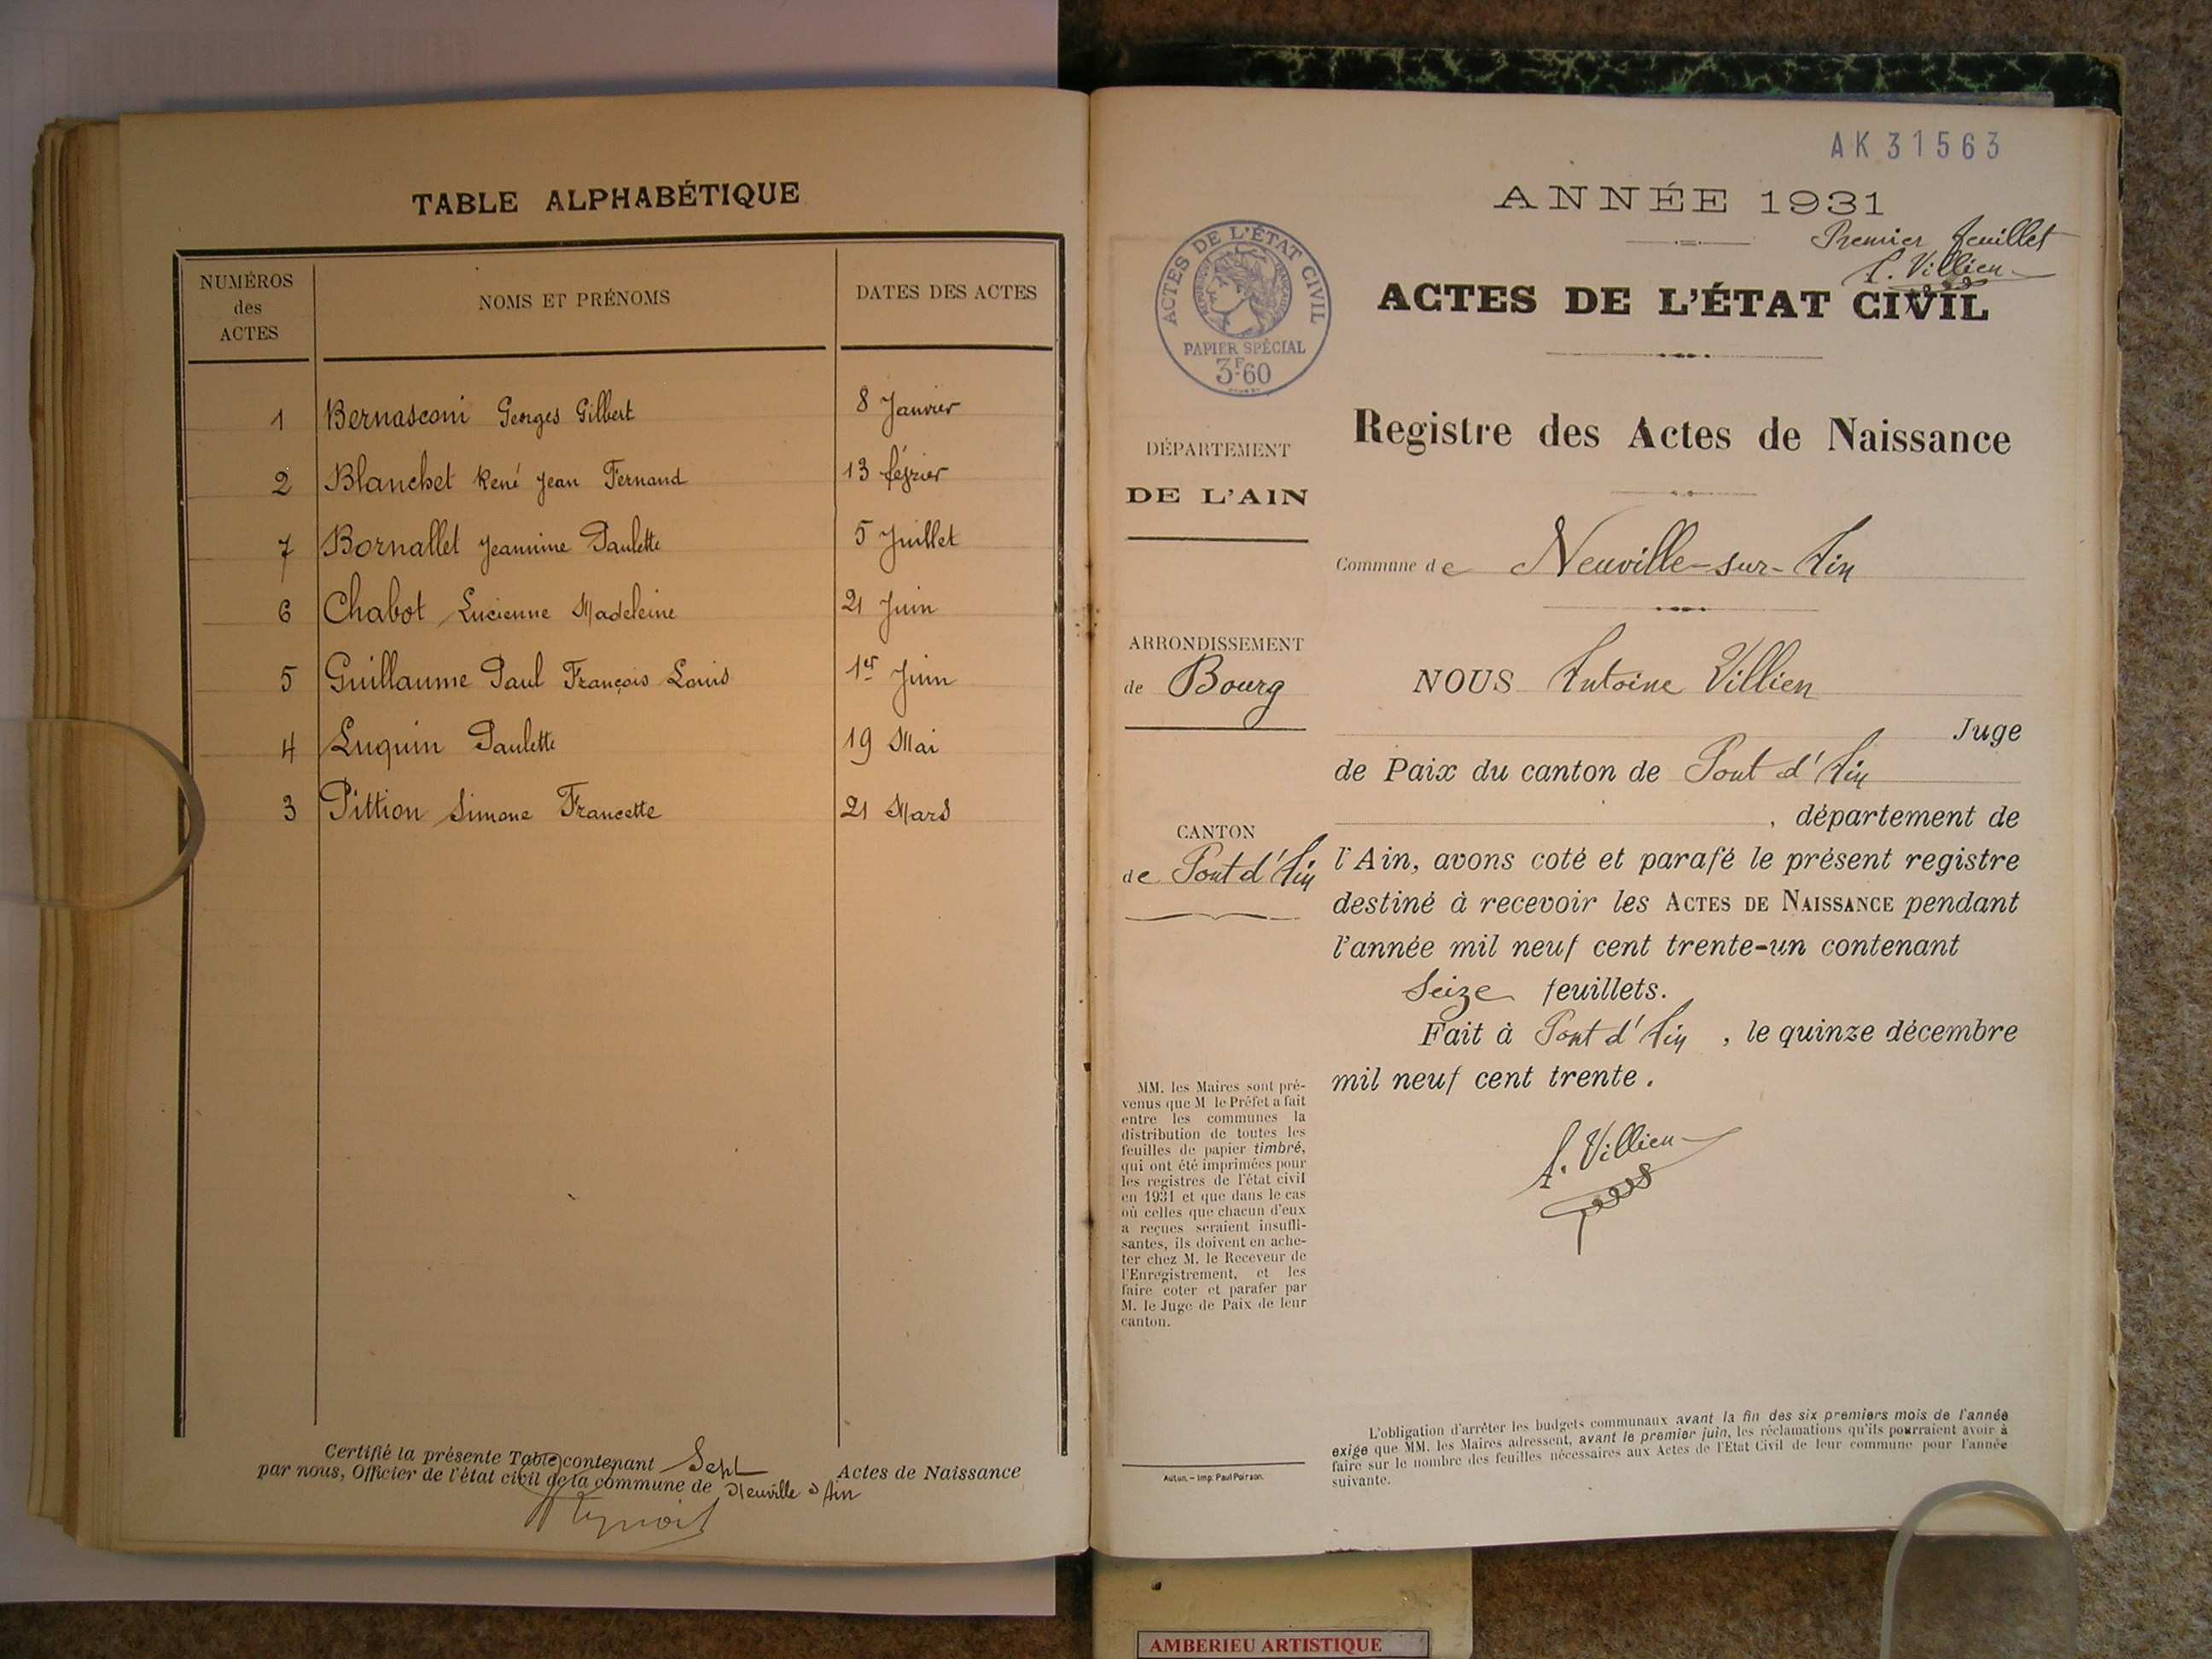 TABLE ALPHABÉTIQUE
NUMÉROS des ACTES NOMS ET PRÉNOMS DATES DES ACTES
1 Bernasconi Georges Gilbert 8 Janvier
2 Blanchet René Jean Fernand 13 février
7 Bornallet Jeannine Paulette 5 Juillet
6 Chabot Lucienne Madeleine 21 Juin
5 Guillaume Paul François Louis 1er Juin
4 Luquin Paulette 19 Mai
3 Pittion Simone Francette 21 Mars
Certifié la présente Table contenant Sept Actes de Naissance
par nous, Officier de l'état civil de la commune de Neuville s Ain
AK 31563
ANNÉE 1931
Premier feuillet
A. Villien
ACTES DE L'ÉTAT CIVIL
ACTES DE L'ÉTAT CIVIL
RÉPUBLIQUE FRANÇAISE
PAPIER SPÉCIAL
3F60
Registre des Actes de Naissance
DÉPARTEMENT
DE L'AIN
Commune de Neuville-sur-Ain
ARRONDISSEMENT
de Bourg
NOUS Antoine Villien
Juge
de Paix du canton de Pont d'Ain
, département de
CANTON
de Pont d'Ain
l'Ain, avons coté et parafé le présent registre
destiné à recevoir les ACTES DE NAISSANCE pendant
l'année mil neuf cent trente-un contenant
Seize feuillets.
Fait à Pont d'Ain, le quinze décembre
mil neuf cent trente.
A. Villien
MM. les Maires sont pré-
venus que M le Préfet a fait
entre les communes la
distribution de toutes les
feuilles de papier timbré,
qui ont été imprimées pour
les registres de l'état civil
en 1931 et que dans le cas
où celles que chacun d'eux
a reçues seraient insuffi-
santes, ils doivent en ache-
ter chez M. le Receveur de
l'Enregistrement, et les
faire coter et parafer par
M. le Juge de Paix de leur
canton.
Autun. - Imp. Paul Poirson.
L'obligation d'arrêter les budgets communaux avant la fin des six premiers mois de l'année
exige que MM. les Maires adressent, avant le premier juin, les réclamations qu'ils pourraient avoir à
faire sur le nombre des feuilles nécessaires aux Actes de l'Etat Civil de leur commune pour l'année
suivante.
AMBERIEU ARTISTIQUE